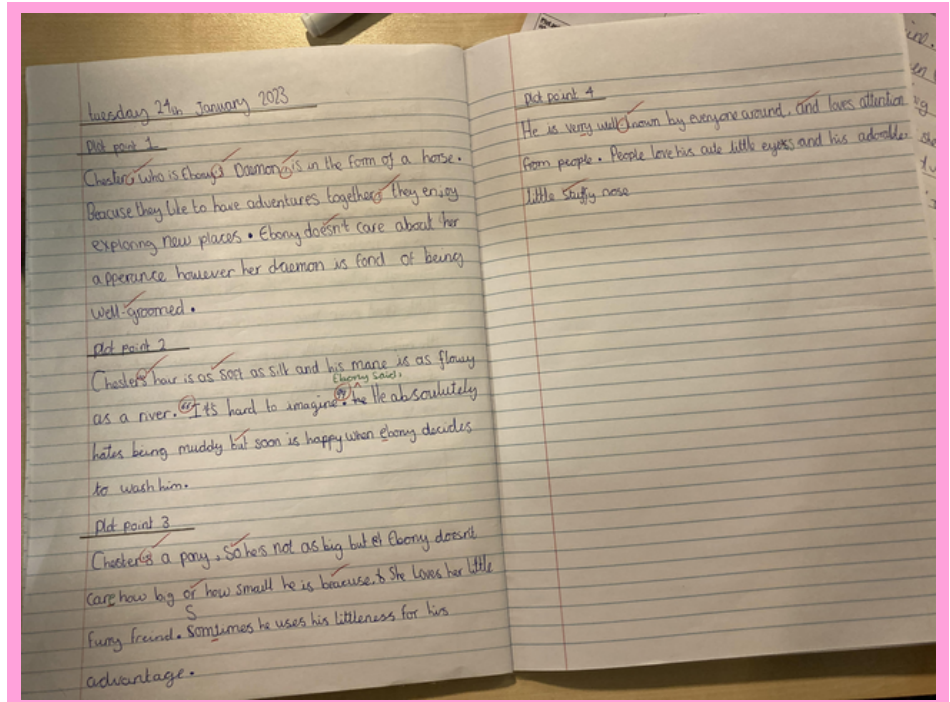 tuesday 24th January 2023
Plot point 1
Chester, who is Ebony's Daemon, is in the form of a horse.
Beacuse they like to have adventures together, they enjoy
exploring new places. Ebony doesn't care about her
apperance however her daemon is fond of being
well-groomed.
Plot point 2
Chester's hair is as soft as silk and his mane is as flowy
Ebony said,
as a river. "It's hard to imagine." he He absoulutely
hates being muddy but soon is happy when ebony decides
to wash him.
Plot point 3
Chester's a pony, So he's not as big but Ebony doesn't
care how big or how small he is beacuse. She loves her little
S
furry freind. Somtimes he uses his littleness for his
advantage.
Plot point 4
He is very well known by everyone around, and loves attention
from people. People love his cute little eyes and his adorable
little nose